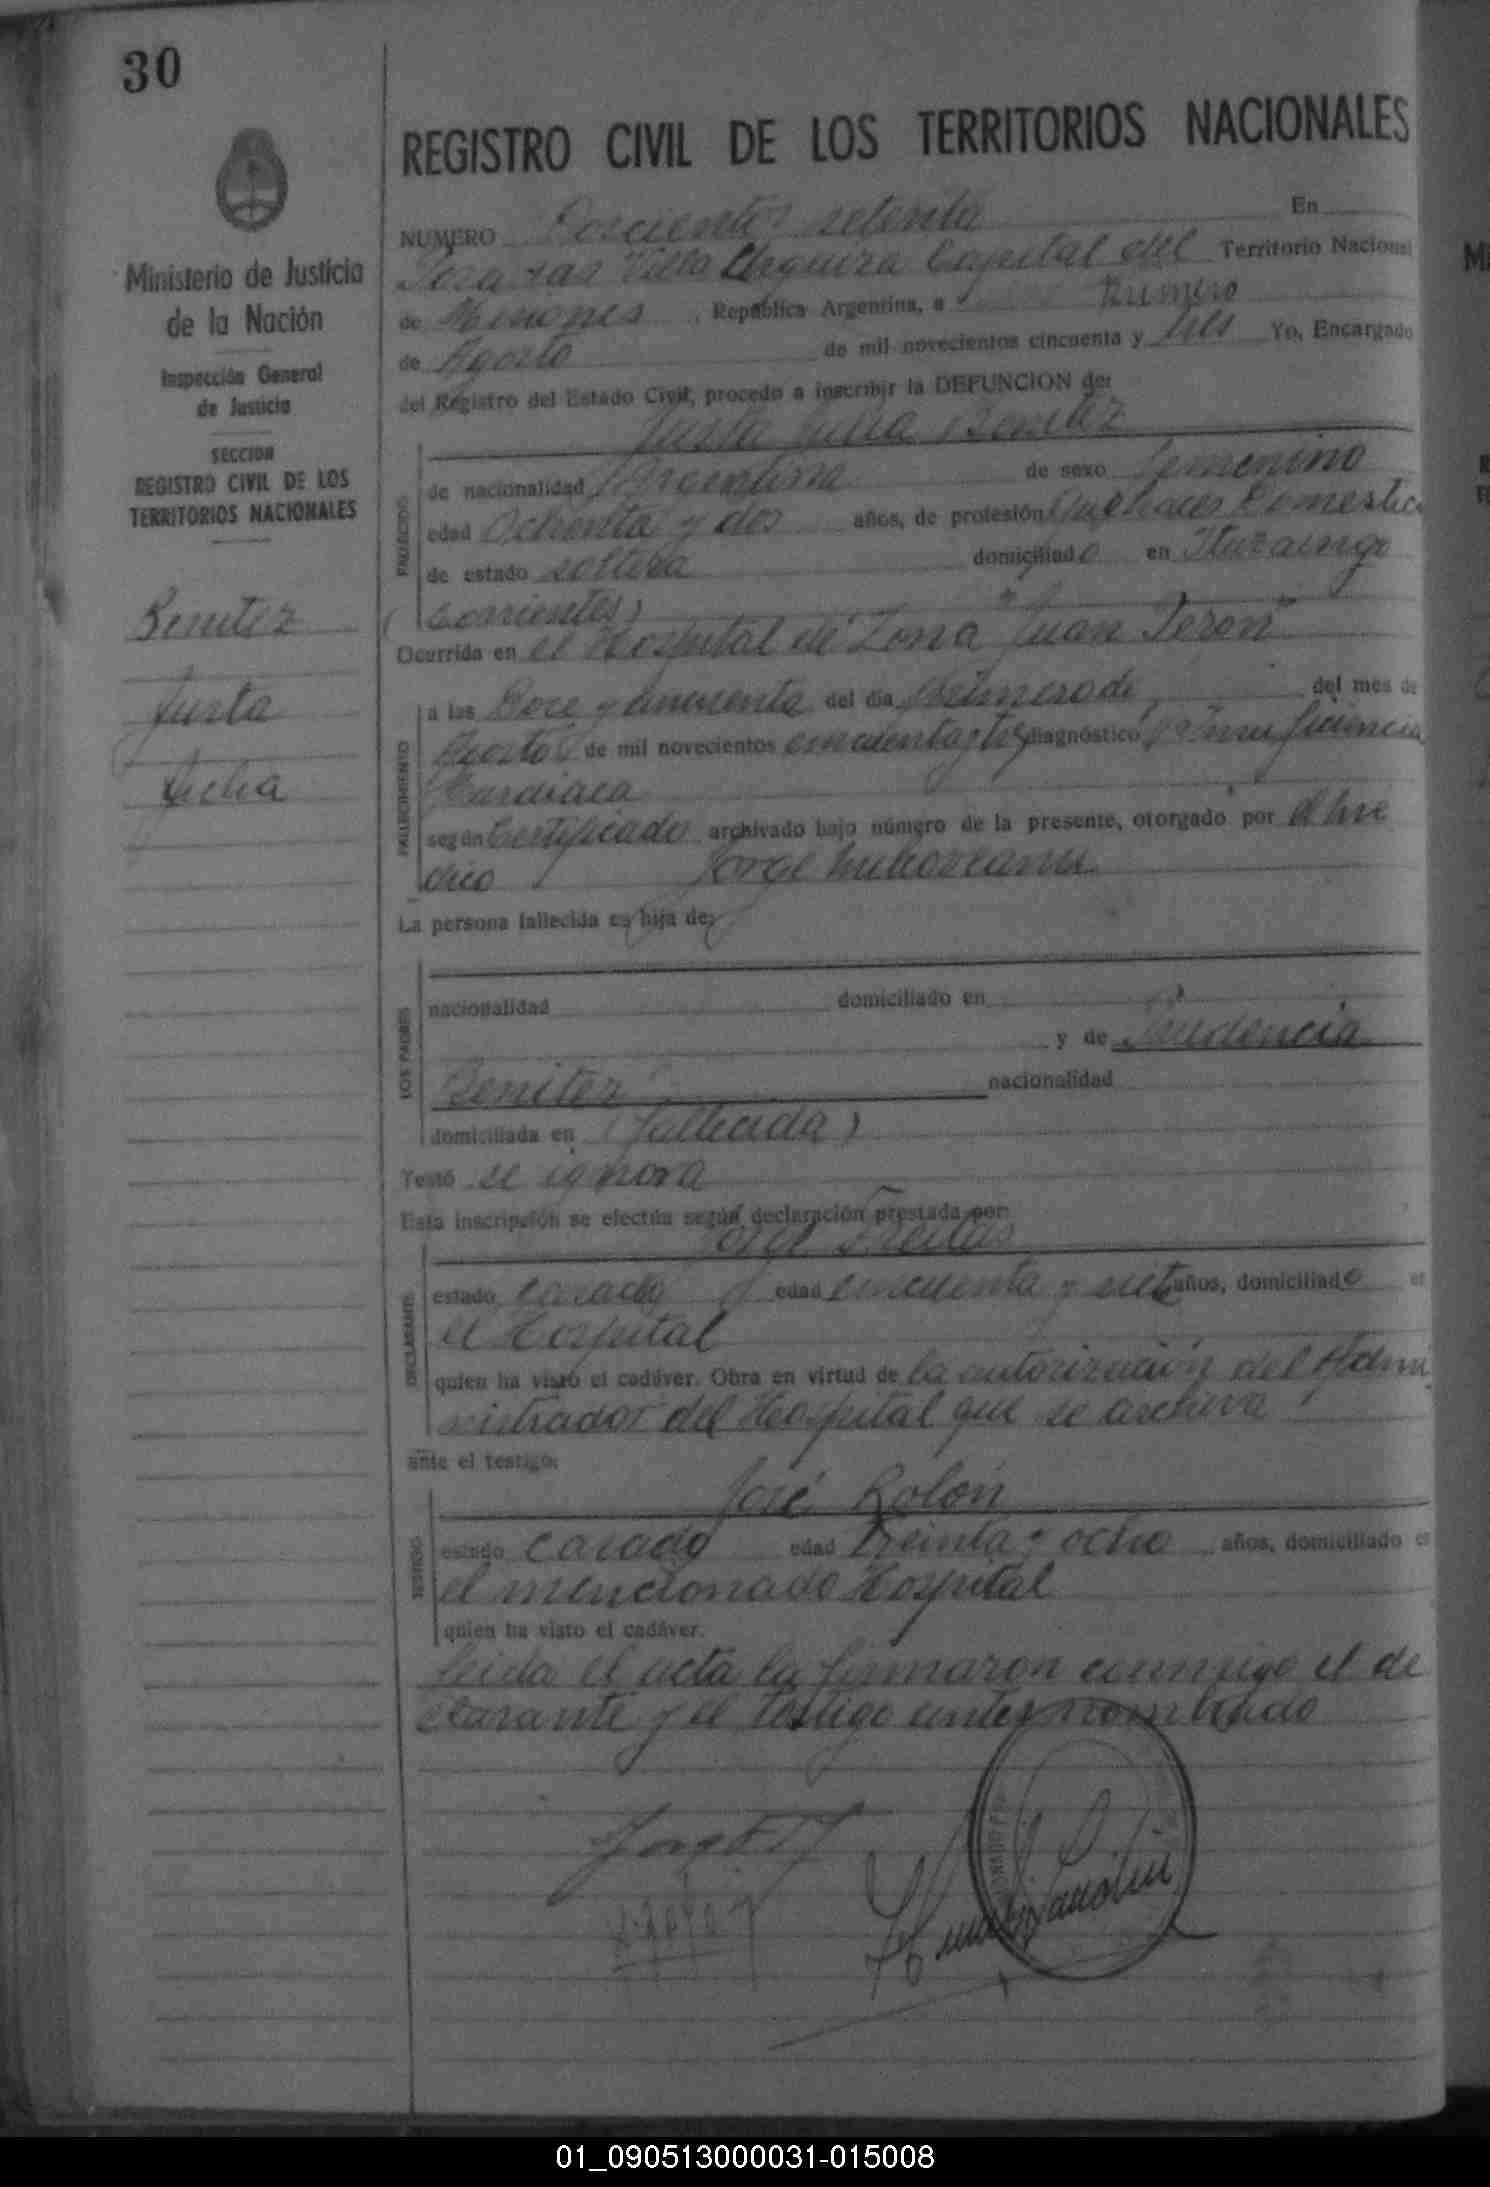 30
REGISTRO CIVIL DE LOS TERRITORIOS NACIONALES
Ministerio de Justicia
de la Nación
Inspección General
de Justicia
SECCION
REGISTRO CIVIL DE LOS
TERRITORIOS NACIONALES
Benitez
Justa
Julia
NUMERO Doscientos setenta En
Posadas Villa Urquiza Capital del Territorio Nacional
de Misiones, República Argentina, a Primero
de Agosto de mil novecientos cincuenta y tres Yo, Encargado
del Registro del Estado Civil, procedo a inscribir la DEFUNCION de:
Justa Julia Benitez
FALLECIDO
de nacionalidad Argentina de sexo femenino
edad Ochenta y dos años, de profesión Quehaceres Domestico
de estado soltera domiciliado en Ituzaingo
(Corrientes)
Ocurrida en el Hospital de Zona "Juan Peron"
FALLECIMIENTO
a las Doce y cincuenta del día primero de del mes de
Agosto de mil novecientos cincuenta y tres diagnóstico Insuficiencia
Cardiaca
según Certificado archivado bajo número de la presente, otorgado por el me
dico Jorge
La persona fallecida es hija de:
LOS PADRES
nacionalidad domiciliado en
y de Prudencia
Benitez nacionalidad
domiciliada en (fallecida)
Testó se ignora
Esta inscripción se efectúa según declaración prestada por:
Jorge Freitas
DECLARANTE
estado casado edad cincuenta y siete años, domiciliado e
el Hospital
quien ha visto el cadáver. Obra en virtud de la autorización del Admi
nistrador del Hospital que se archiva
ante el testigo:
José Rolón
TESTIGO
estado casado edad treinta y ocho años, domiciliado e
el mencionado Hospital
quien ha visto el cadáver.
Leida el acta la firmaron conmigo el de
clarante y el testigo antes nombrado
01_090513000031-015008